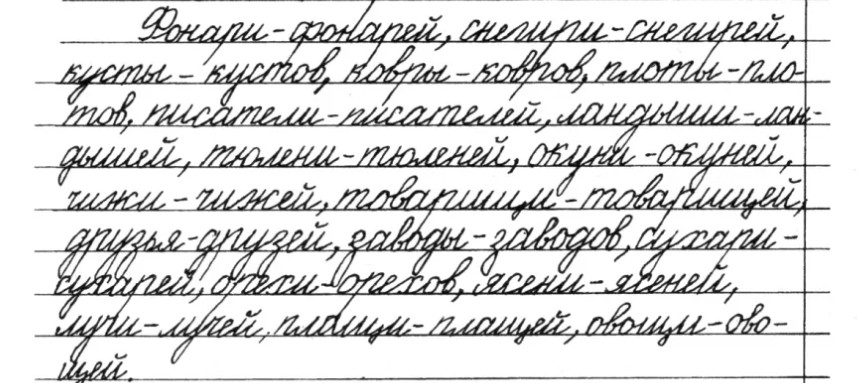 Фонари-фонарей, снегири-снегирей,
кусты - кустов, ковры-ковров, плоты-пло-
тов, писатели-писателей, ландыши-лан-
дышей, тюлени-тюленей, окуни-окуней,
чижи - чижей, товарищи-товарищей,
друзья-друзей, заводы-заводов, сухари-
сухарей, орехи-орехов, ясени-ясеней,
лучи-лучей, плащи-плащей, овощи-ово-
щей.